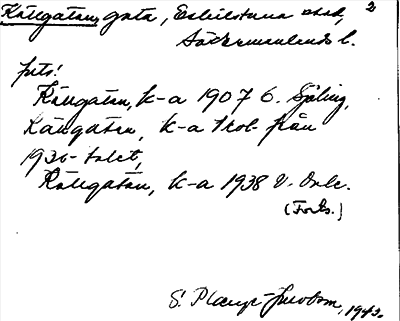 Källgatan, gata, Eskilstuna stad, 2
Södermanlands l.
forts.
Källgatan, k-a 1907 G. Sjöling,
Källgatan, k-a från
1930-talet,
Källgatan, k-a 1938 V.
(Forts.)
S. 1943.